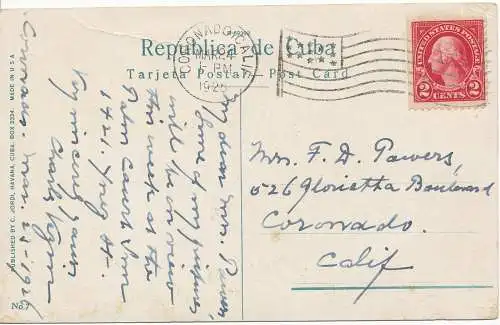 República de Cuba
Tarjeta Postal-Post Card
CORONADO, CALIF.
MAR 24
PM
1926
UNITED STATES POSTAGE
2 CENTS 2
My dear Mrs. Powers,
Some of my pictures
will be on view
this week at the
Palm Court Inn
1421
Very sincerely yours
Charles
Coronado. Mar. 23-1926
Mrs. F. D. Powers,
526 Glorietta Boulevard
Coronado.
Calif
PUBLISHED BY C. JORDI, HAVANA, CUBA. BOX 2234. MADE IN U S A
No.